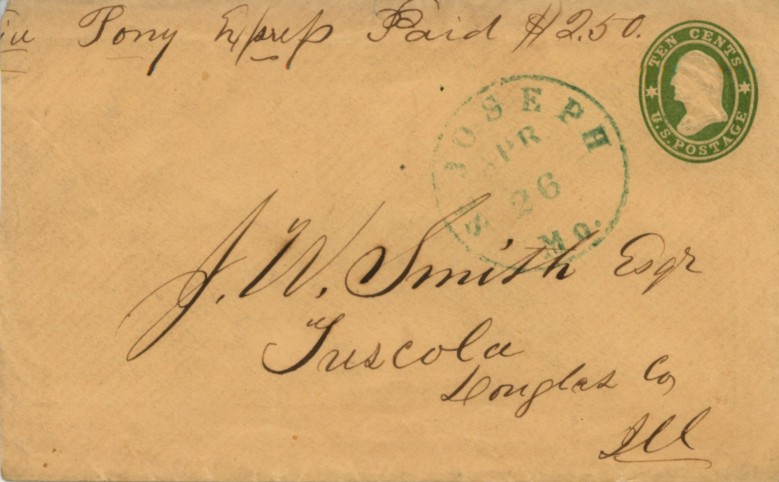 Via Pony Express Paid $2.50.
TEN CENTS
U.S. POSTAGE
St JOSEPH
APR
26
MO.
J. W. Smith Esqr
Tuscola
Douglas Co
Ill